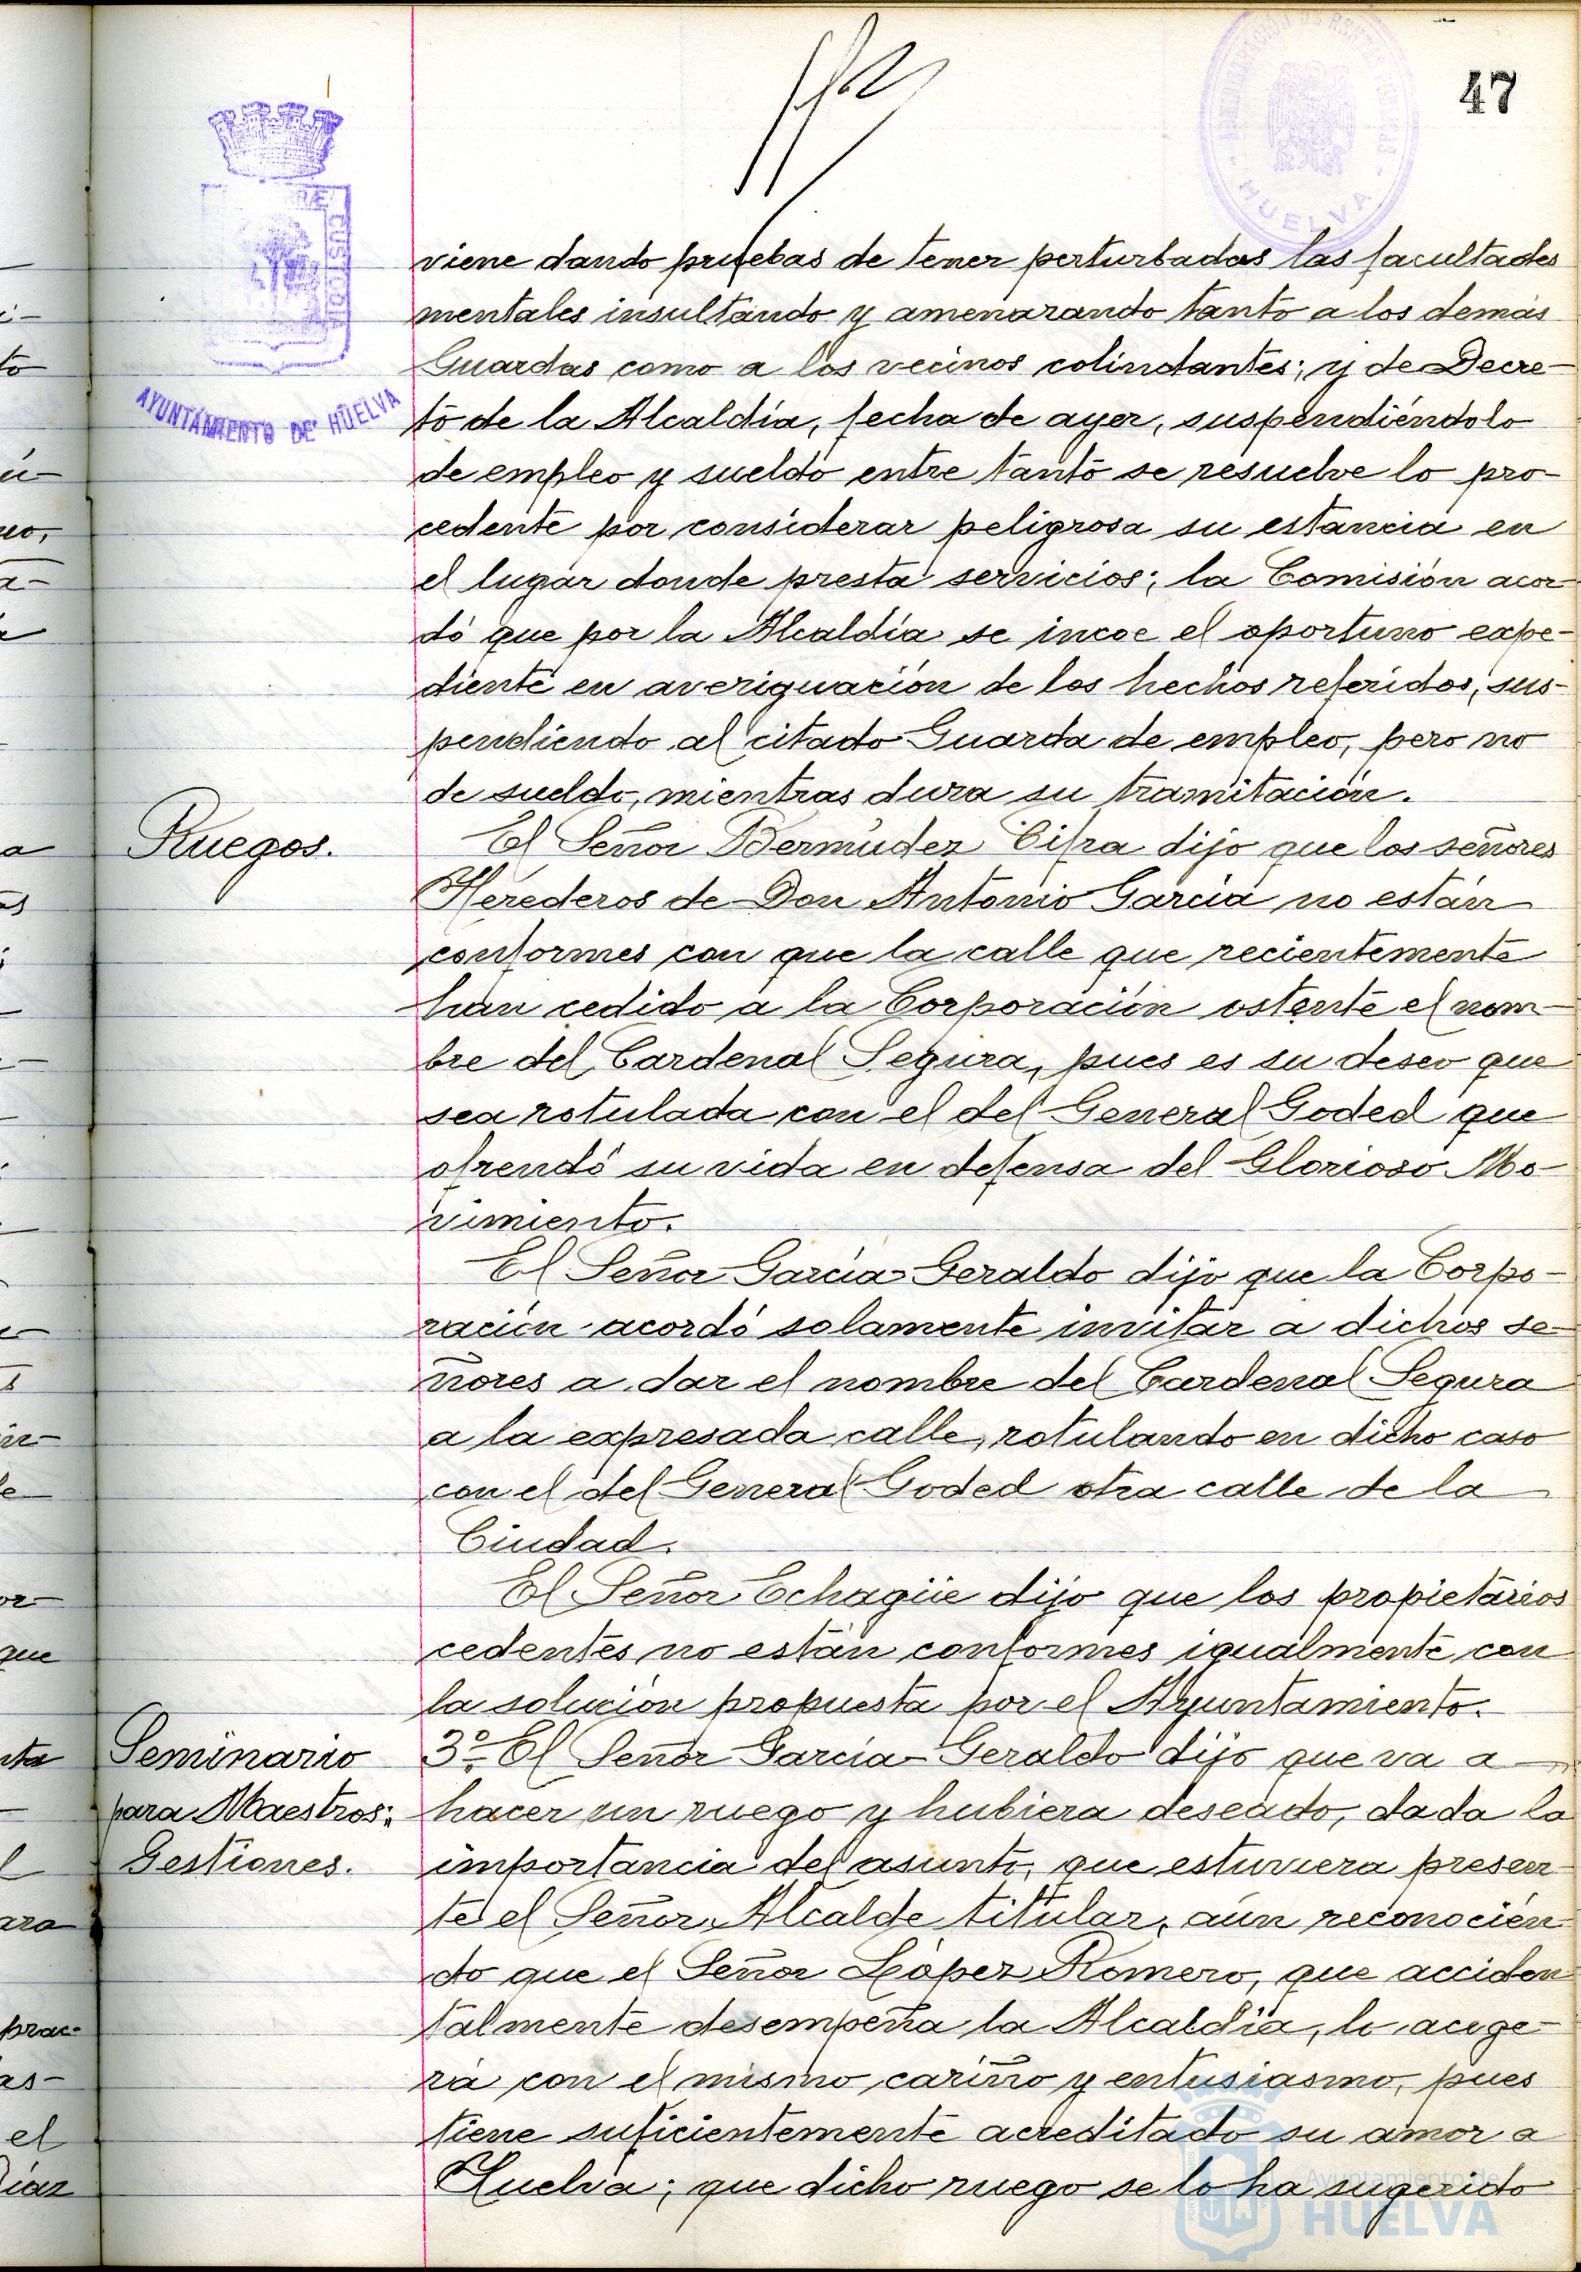 47
ADMINISTRACIÓN DE RENTAS PÚBLICAS
- HUELVA -
CUSTODIA
AYUNTAMIENTO DE HUELVA
viene dando pruebas de tener perturbadas las facultades
mentales insultando y amenazando tanto a los demás
Guardas como a los vecinos colindantes; y de Decre-
to de la Alcaldía, fecha de ayer, suspendiéndolo
de empleo y sueldo entre tanto se resuelve lo pro-
cedente por considerar peligrosa su estancia en
el lugar donde presta servicios; la Comisión acor-
dó que por la Alcaldía se incoe el oportuno expe-
diente en averiguación de los hechos referidos, sus-
pendiendo al citado Guarda de empleo, pero no
de sueldo, mientras dura su tramitación.
Ruegos.
El Señor Bermúdez Cifra dijo que los señores
Herederos de Don Antonio García no están
conformes con que la calle que recientemente
han cedido a la Corporación ostente el nom-
bre del Cardenal Segura, pues es su deseo que
sea rotulada con el del General Goded que
ofrendó su vida en defensa del Glorioso Mo-
vimiento.
El Señor García-Geraldo dijo que la Corpo-
ración acordó solamente invitar a dichos se-
ñores a dar el nombre del Cardenal Segura
a la expresada calle, rotulando en dicho caso
con el del General Goded otra calle de la
Ciudad.
El Señor Echagüe dijo que los propietarios
cedentes no están conformes igualmente con
la solución propuesta por el Ayuntamiento.
Seminario
para Maestros:
Gestiones.
3º- El Señor García-Geraldo dijo que va a
hacer un ruego y hubiera deseado, dada la
importancia del asunto, que estuviera presen-
te el Señor Alcalde titular, aún reconocién-
do que el Señor López Romero, que acciden
talmente desempeña la Alcaldía, lo acoge-
rá con el mismo cariño y entusiasmo, pues
tiene suficientemente acreditado su amor a
Huelva; que dicho ruego se lo ha sugerido
Ayuntamiento de
HUELVA